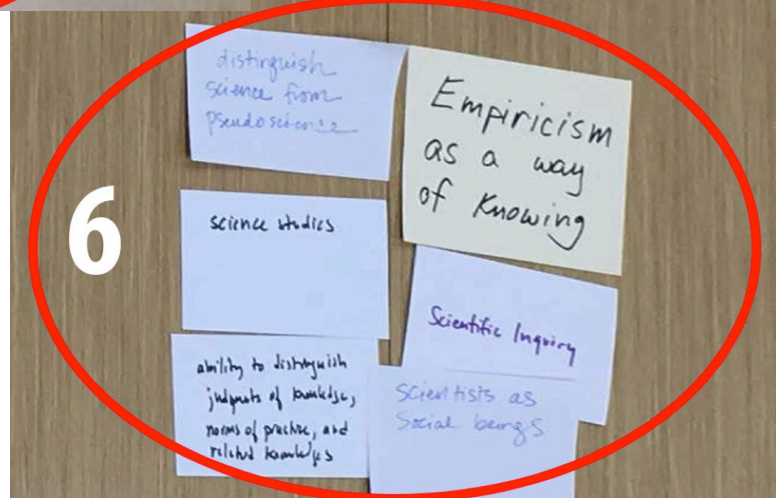 6
distinguish
science from
pseudoscience
Empiricism
as a way
of Knowing
science studies
Scientific Inquiry
ability to distinguish
judgments of knowledge,
norms of practice, and
related knowledges
Scientists as
Social beings